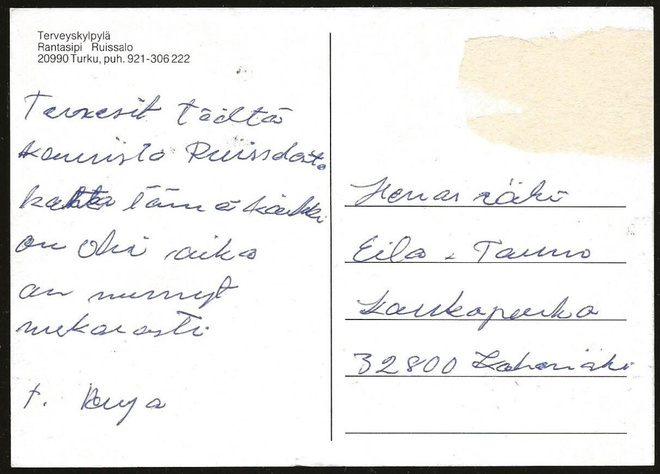 Terveyskylpylä
Rantasipi Ruissalo
20990 Turku, puh. 921-306 222
Terveisit täältä
kauniista Ruissalosta
tämä kaikki
on ohi aika
on mennyt
mukavasti
t.
Eila
Tauno
Kaukoperko
32800